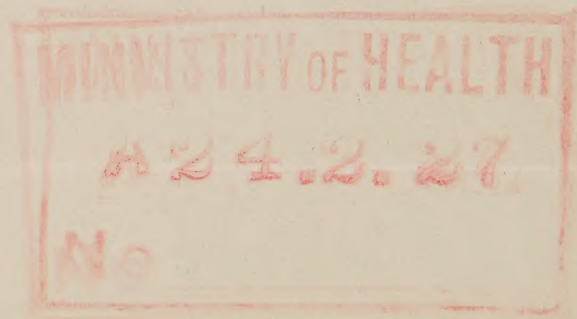 MINISTRY OF HEALTH
A 24.2.27
No